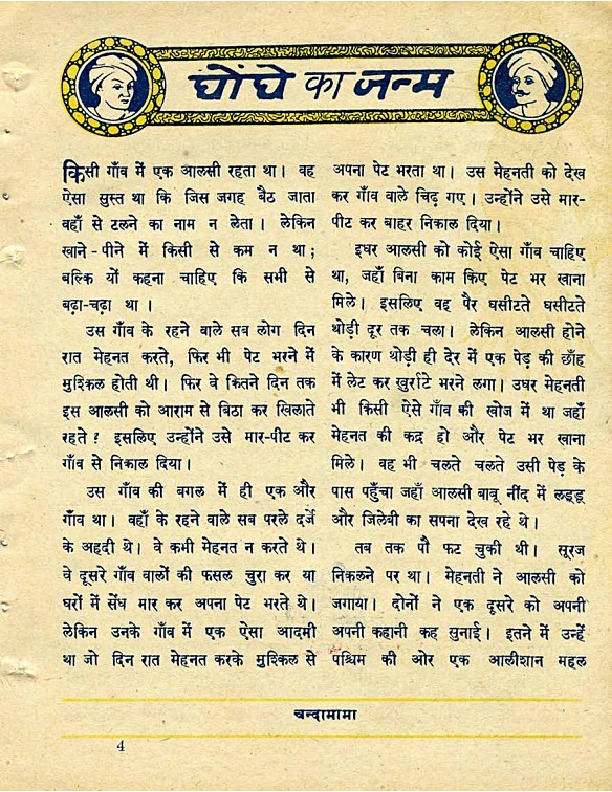 घोंघे का जन्म
किसी गाँव में एक आलसी रहता था। वह
ऐसा सुस्त था कि जिस जगह बैठ जाता
वहाँ से टलने का नाम न लेता। लेकिन
खाने-पीने में किसी से कम न था;
बल्कि यों कहना चाहिए कि सभी से
बढ़ा-चढ़ा था।
उस गाँव के रहने वाले सब लोग दिन
रात मेहनत करते, फिर भी पेट भरने में
मुश्किल होती थी। फिर वे कितने दिन तक
इस आलसी को आराम से बिठा कर खिलाते
रहते? इसलिए उन्होंने उसे मार-पीट कर
गाँव से निकाल दिया।
उस गाँव की बगल में ही एक और
गाँव था। वहाँ के रहने वाले सब परले दर्जे
के अहदी थे। वे कभी मेहनत न करते थे।
वे दूसरे गाँव वालों की फसल चुरा कर या
घरों में सेंध मार कर अपना पेट भरते थे।
लेकिन उनके गाँव में एक ऐसा आदमी
था जो दिन रात मेहनत करके मुश्किल से
अपना पेट भरता था। उस मेहनती को देख
कर गाँव वाले चिढ़ गए। उन्होंने उसे मार-
पीट कर बाहर निकाल दिया।
इधर आलसी को कोई ऐसा गाँव चाहिए
था, जहाँ बिना काम किए पेट भर खाना
मिले। इसलिए वह पैर घसीटते घसीटते
थोड़ी दूर तक चला। लेकिन आलसी होने
के कारण थोड़ी ही देर में एक पेड़ की छाँह
में लेट कर खुर्राटे भरने लगा। उधर मेहनती
भी किसी ऐसे गाँव की खोज में था जहाँ
मेहनत की कद्र हो और पेट भर खाना
मिले। वह भी चलते चलते उसी पेड़ के
पास पहुँचा जहाँ आलसी बाबू नींद में लड्डू
और जिलेबी का सपना देख रहे थे।
तब तक पौ फट चुकी थी। सूरज
निकलने पर था। मेहनती ने आलसी को
जगाया। दोनों ने एक दूसरे को अपनी
अपनी कहानी कह सुनाई। इतने में उन्हें
पश्चिम की ओर एक आलीशान महल
चन्दामामा
4